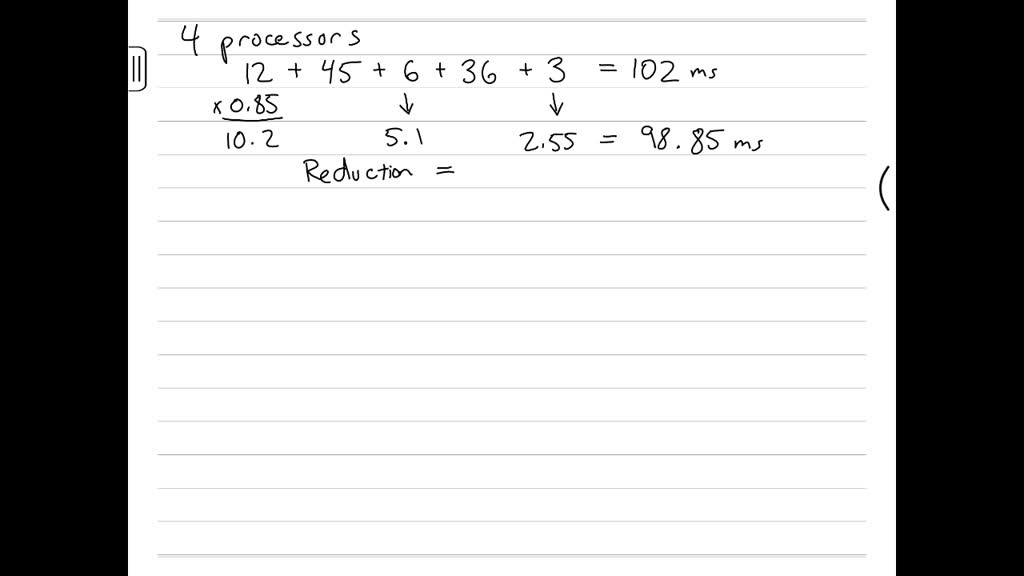 4 processors
12 + 45 + 6 + 36 + 3 = 102 ms
x 0.85 ↓ ↓
10.2 5.1 2.55 = 98.85 ms
Reduction =
(